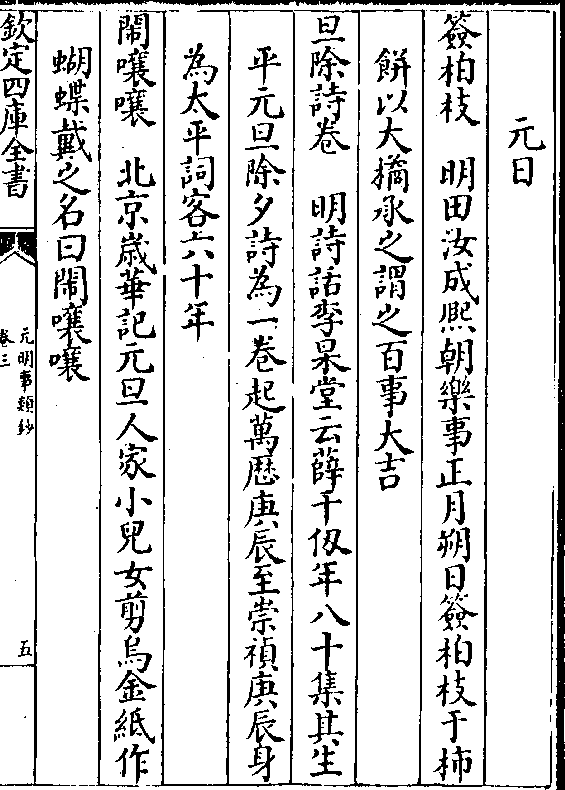 元日
簽柏枝　明田汝成熈朝樂事正月朔日簽柏枝于柿
餅以大橘承之謂之百事大吉
旦除詩卷　明詩話李杲堂云薛千仭年八十集其生
平元旦除夕詩為一卷起萬厯庚辰至崇禎庚辰身
為太平詞客六十年
鬧嚷嚷　北京嵗華記元旦人家小兒女剪烏金紙作
蝴蝶戴之名曰鬧嚷嚷
欽定四庫全書
元明事類鈔
卷三
五